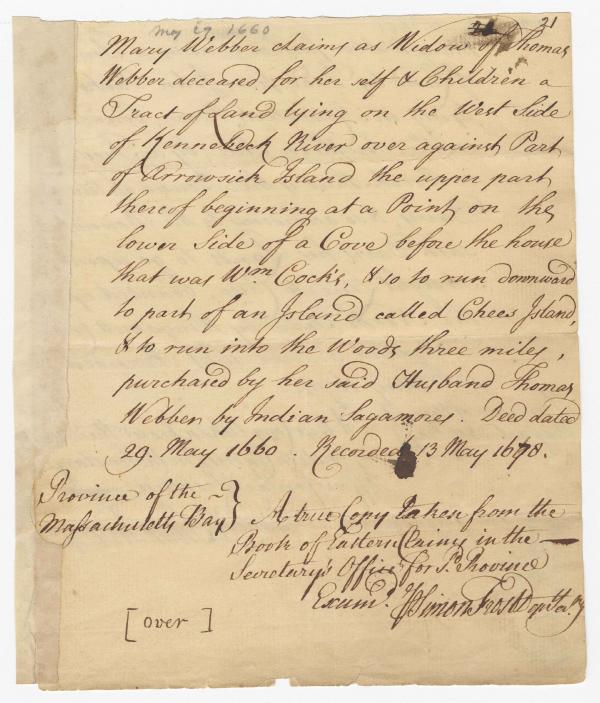 May 29 1660
21
Mary Webber claims as Widow of Thomas
Webber deceased for her self & Children a
Tract of Land lying on the West Side
of Kennebeck River over against Part
of Arrowsick Island the upper part
thereof beginning at a Point on the
lower Side of a Cove before the house
that was Wm Cock's, & so to run downward
to part of an Island called Chees Island,
& to run into the Woods three miles,
purchased by her said Husband Thomas
Webber by Indian Sagamores. Deed dated
29. May 1660. Recorded 13 May 1678.
Province of the
Massachusetts Bay } A true Copy taken from the
Book of Eastern Claims in the
Secretary's Office for sd. Province
Examd. Simon Frost
[over]